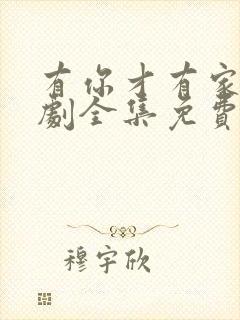 有你才有家
劇全集免費
穆宇欣